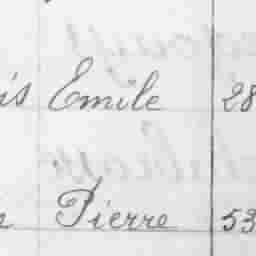 is Emile 28
Pierre 53